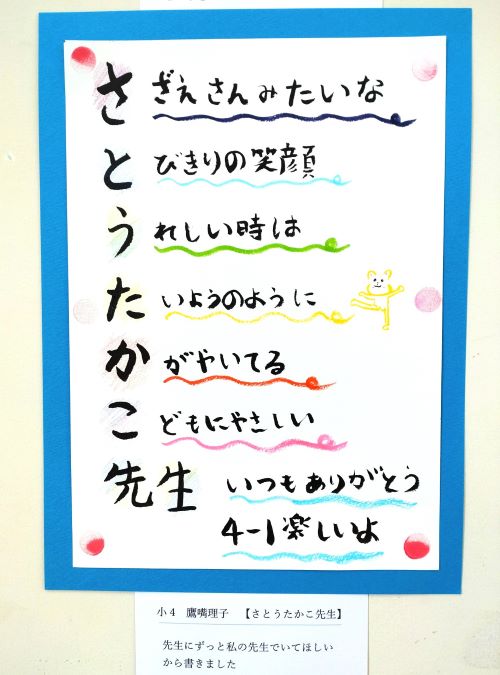 さざえさんみたいな
とびきりの笑顔
うれしい時は
たいようのように
かがやいてる
こどもにやさしい
先生 いつもありがとう
4-1楽しいよ
小4 鷹嘴理子 【さとうたかこ先生】
先生にずっと私の先生でいてほしい
から書きました